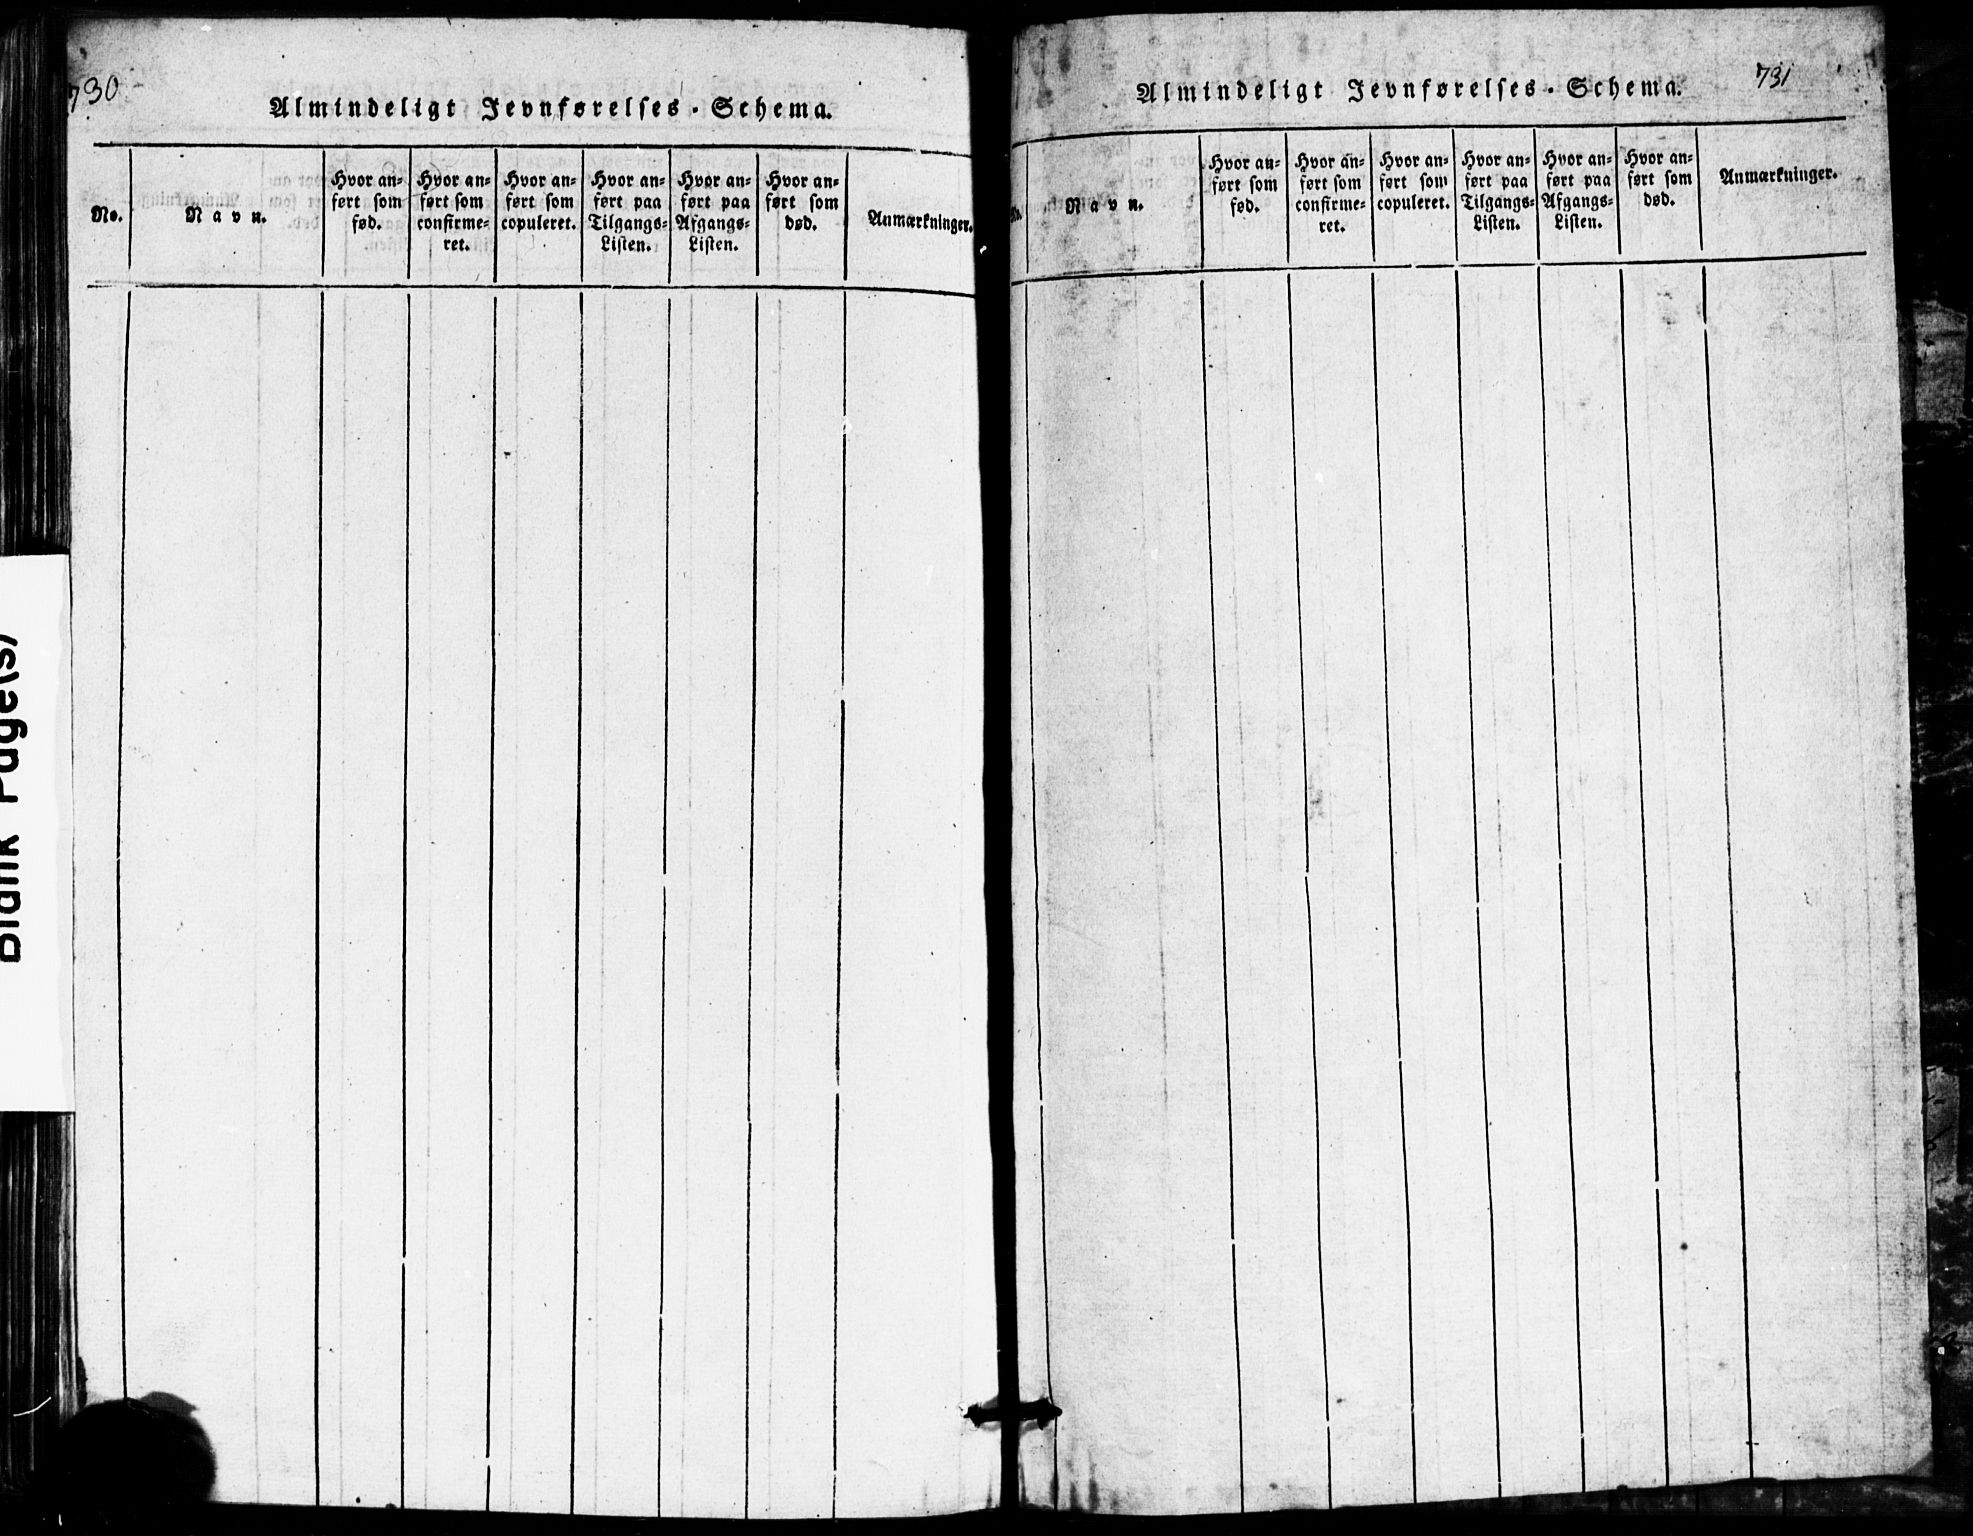 730
Almindeligt Jevnførelses-Schema.
No.
Navn.
Hvor an-
ført som
fød.
Hvor an-
ført som
confirme-
ret.
Hvor an-
ført som
copuleret.
Hvor an-
ført paa
Tilgangs-
Listen.
Hvor an-
ført paa
Afgangs-
Listen.
Hvor an-
ført som
død.
Anmærkninger.
731
Almindeligt Jevnførelses-Schema.
No.
Navn.
Hvor an-
ført som
fød.
Hvor an-
ført som
confirme-
ret.
Hvor an-
ført som
copuleret.
Hvor an-
ført paa
Tilgangs-
Listen.
Hvor an-
ført paa
Afgangs-
Listen.
Hvor an-
ført som
død.
Anmærkninger.
Blank Page(s)